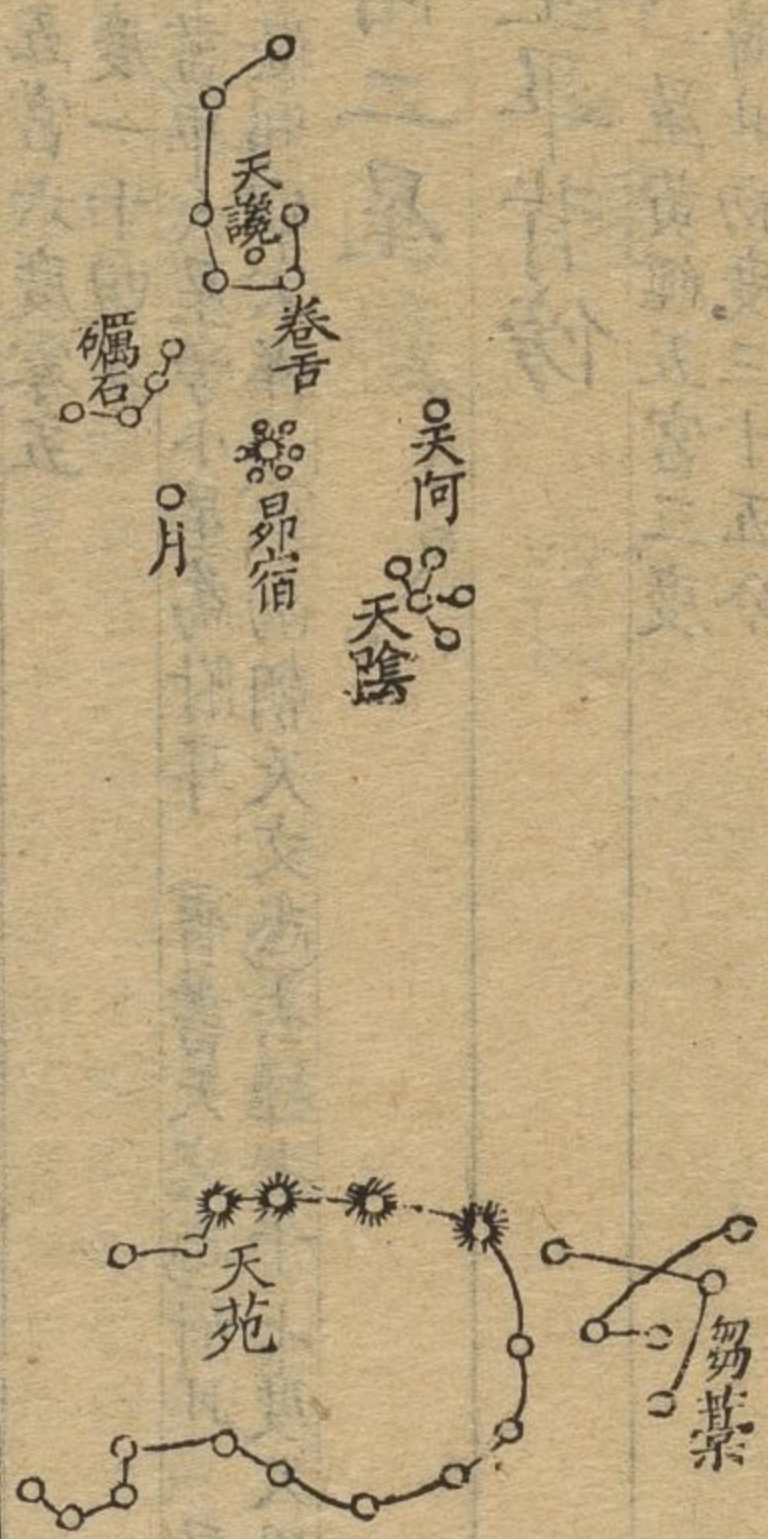 天讒
卷舌
礪石
昴宿
月
天阿
天陰
天苑
芻藁